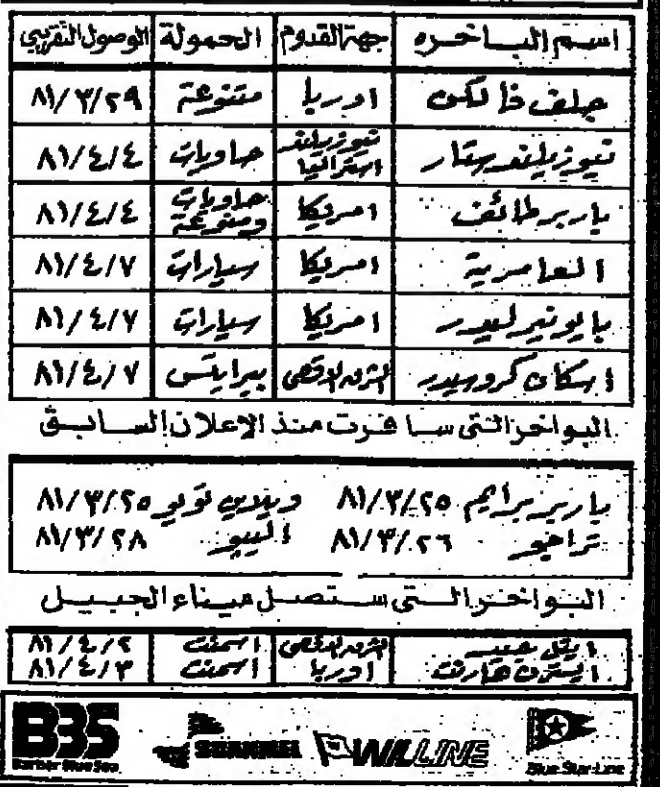 اسم الباخره جهة القدوم الحمولة الوصول التقريبي
جلف فالكن اوربا متنوعة ٨١/٣/٢٩
نيوزيلند ستار نيوزيلند استراليا حاويات ٨١/٤/٤
باربر طائف امريكا حاويات ومتنوعة ٨١/٤/٤
العامرية امريكا سيارات ٨١/٤/٧
بايونير ليدر امريكا سيارات ٨١/٤/٧
اسكان كروسيدر الشرق الاقصى بيرايتس ٨١/٤/٧
البواخر التي سافرت منذ الإعلان السابق
باربر برايم ٨١/٣/٢٥ ٨١/٣/٢٥
٨١/٣/٢٦ ٨١/٣/٢٨
البواخر التي ستصل ميناء الجبيل
الشرق الاقصى اسمنت ٨١/٤/٢
ايسترن اوربا اسمنت ٨١/٤/٣
BBS
Barber Blue Sea
WILLINE
Blue Star Line